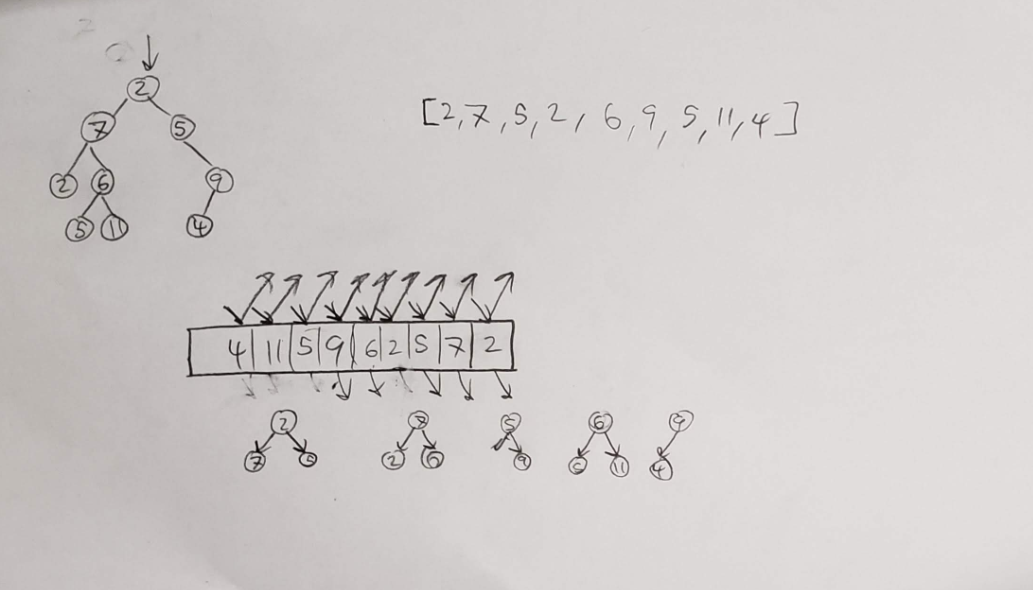 2
7 5
2 6 9
5 11 4
[2,7,5,2,6,9,5,11,4]
4 11 5 9 6 2 5 7 2
2 7 5 6 9
7 5 2 6 9 5 11 4